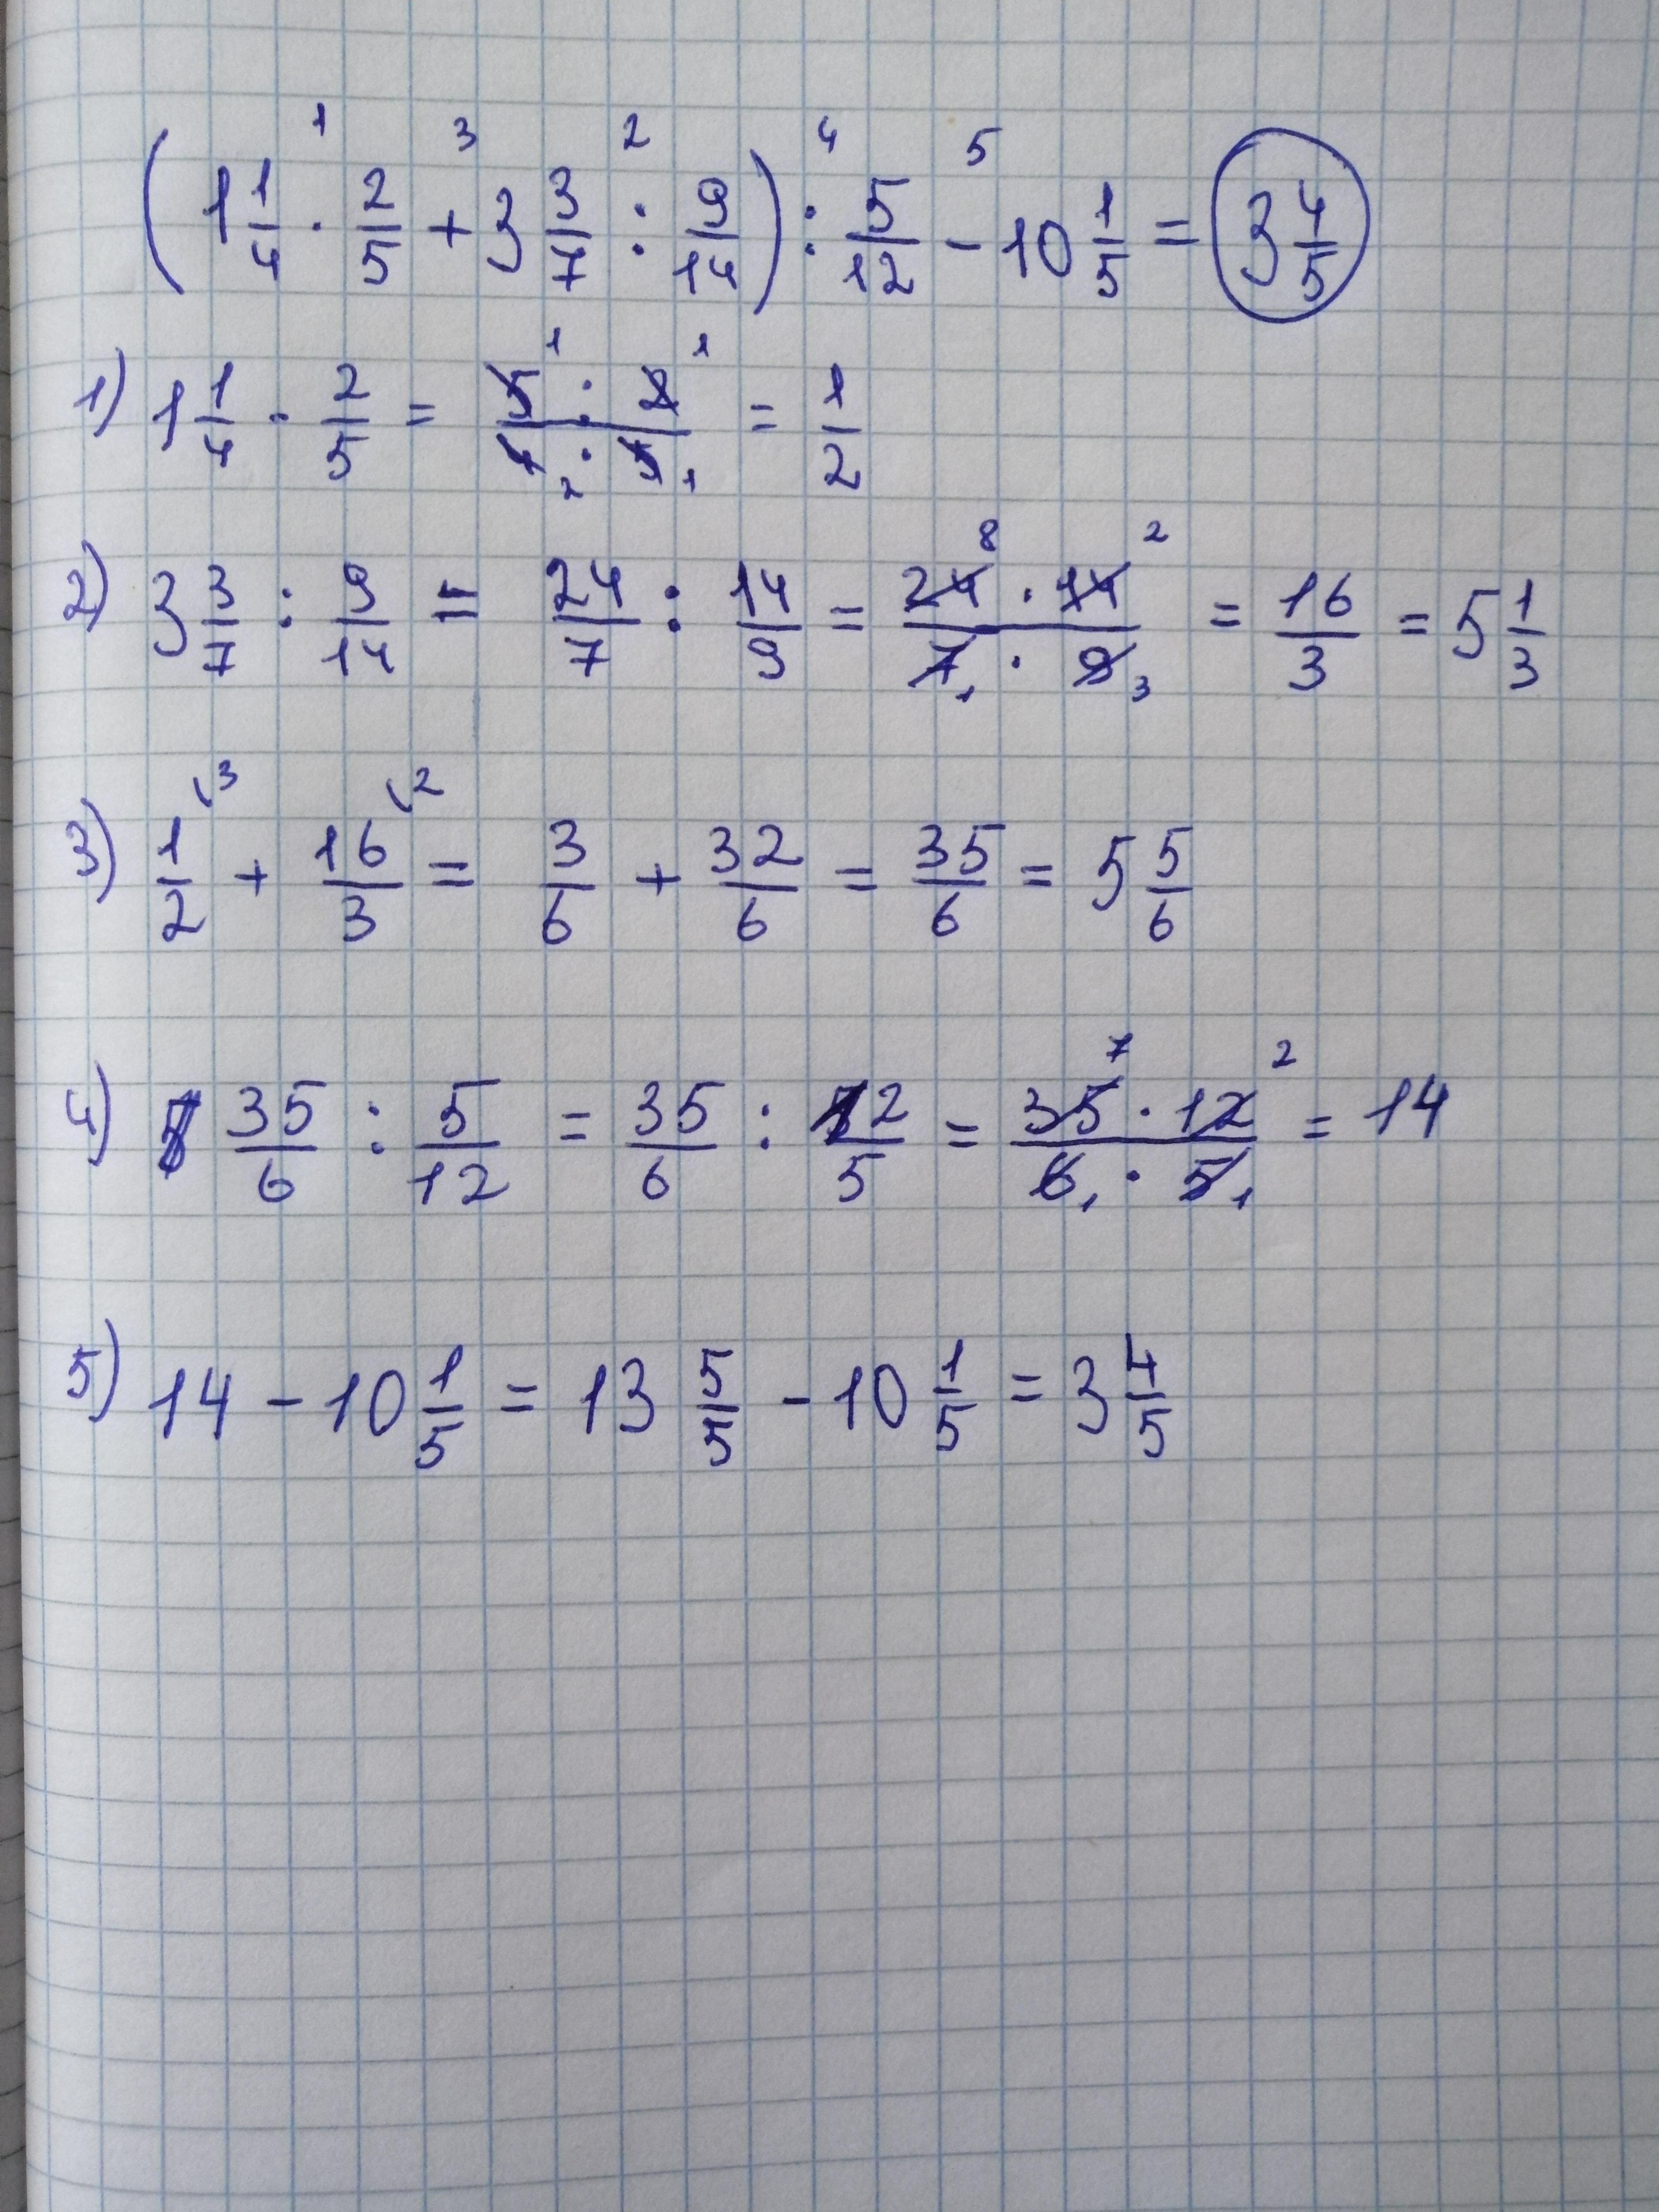 (1 1/4 · 2/5 + 3 3/7 : 9/14) : 5/12 - 10 1/5 = 3 4/5
1 3 2 4 5
1) 1 1/4 · 2/5 = 5 · 2 / 4 · 5 = 1/2
2) 3 3/7 : 9/14 = 24/7 : 14/9 = 24 · 14 / 7 · 9 = 16/3 = 5 1/3
3) 1/2 + 16/3 = 3/6 + 32/6 = 35/6 = 5 5/6
4) 35/6 : 5/12 = 35/6 : 12/5 = 35 · 12 / 6 · 5 = 14
5) 14 - 10 1/5 = 13 5/5 - 10 1/5 = 3 4/5